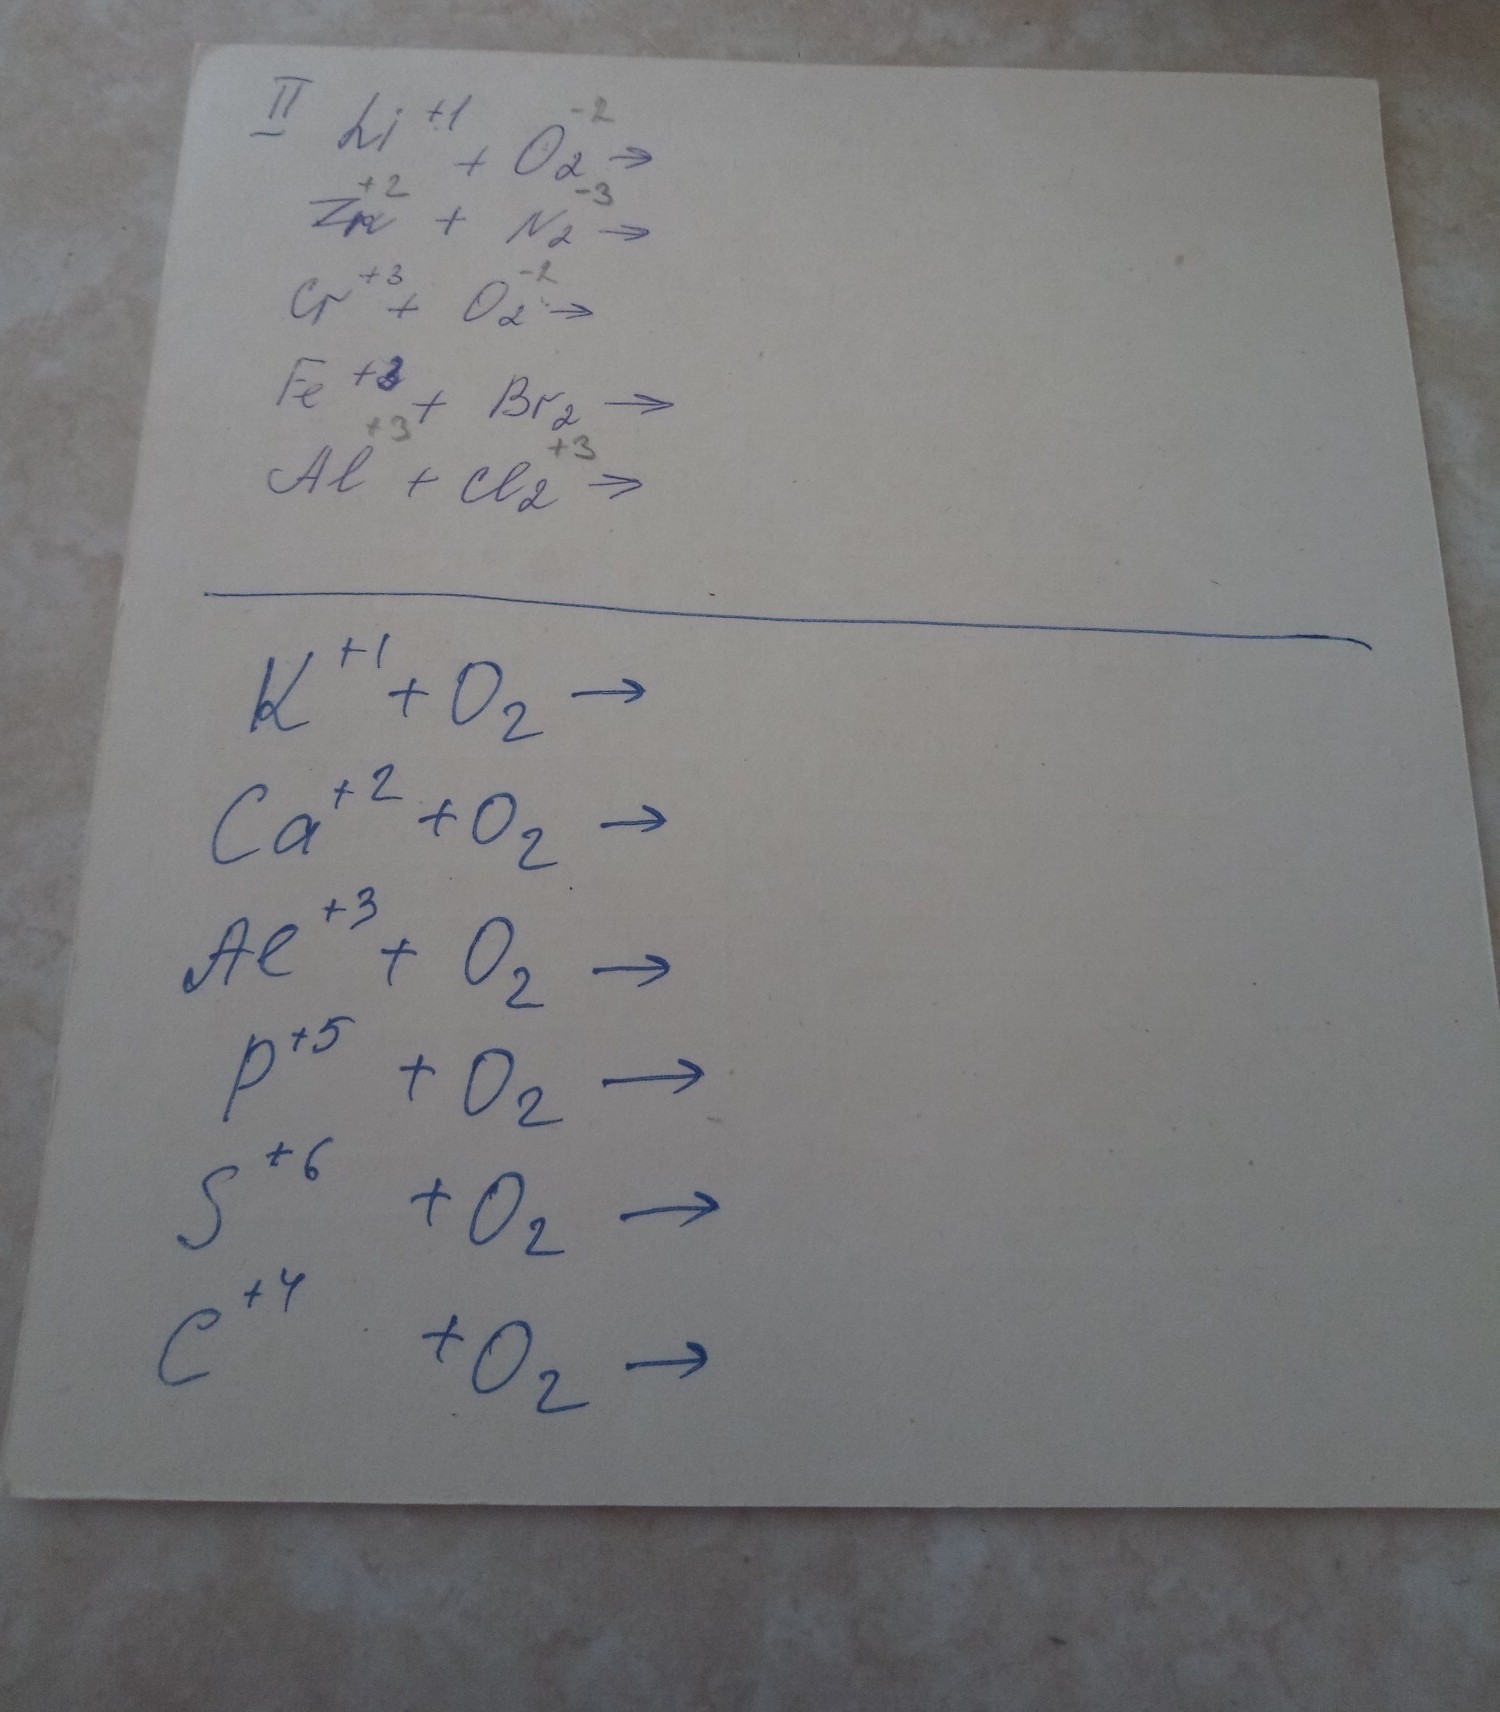 II Li⁺¹ + O₂⁻² →
Zn⁺² + N₂⁻³ →
Cr⁺³ + O₂⁻² →
Fe⁺³ + Br₂ →
Al⁺³ + Cl₂⁺³ →
K⁺¹ + O₂ →
Ca⁺² + O₂ →
Al⁺³ + O₂ →
P⁺⁵ + O₂ →
S⁺⁶ + O₂ →
C⁺⁴ + O₂ →